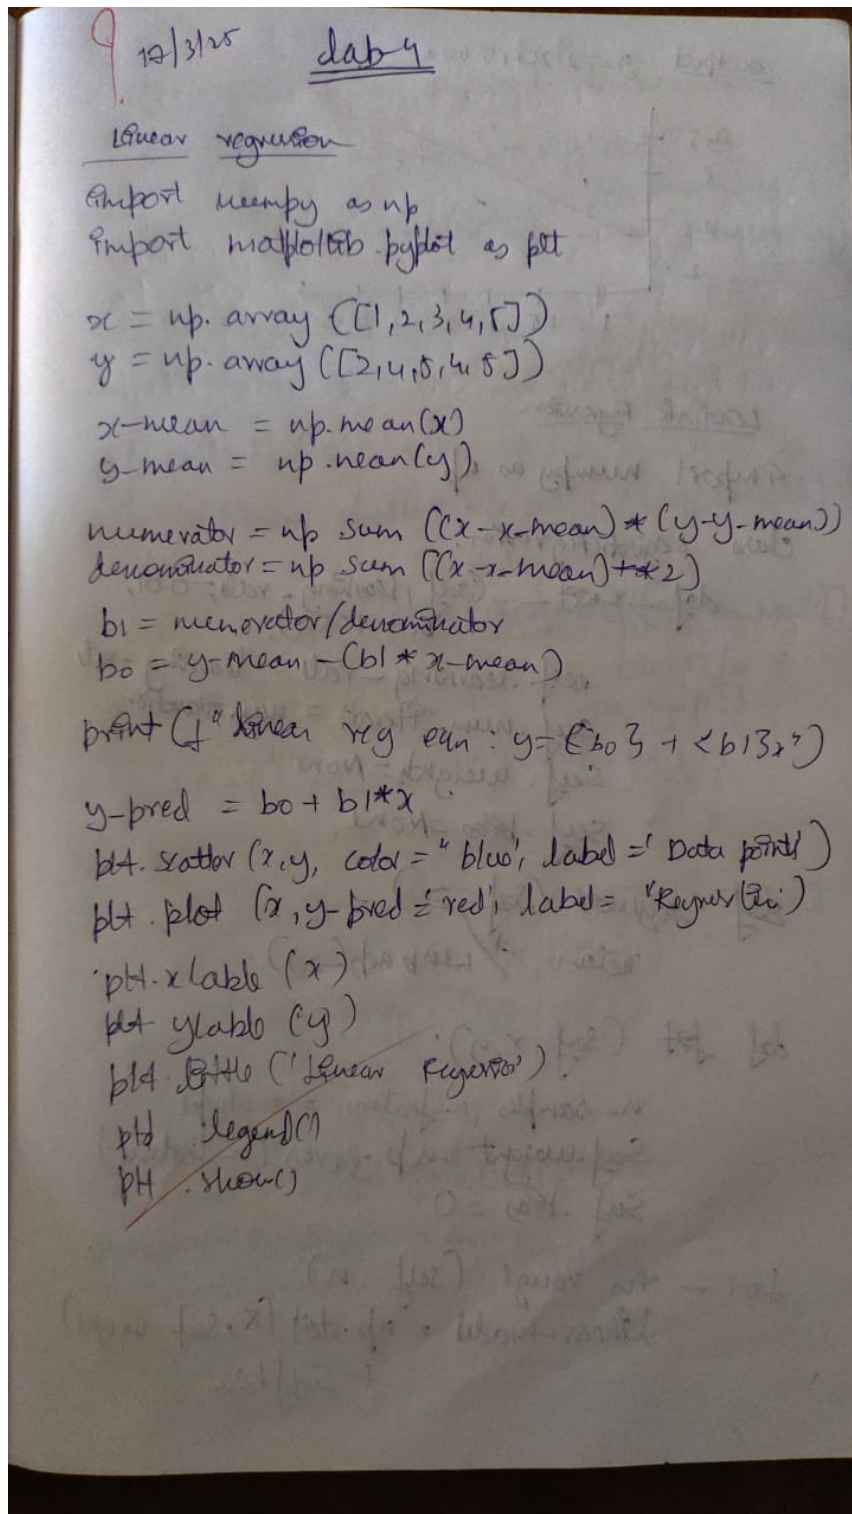 9
17/3/25
Lab-4
Linear regression
import numpy as np
import matplotlib.pyplot as plt
x = np.array ([1,2,3,4,5])
y = np.array ([2,4,5,4,5])
x-mean = np.mean(x)
y-mean = np.mean(y)
numerator = np sum ((x-x-mean) * (y-y-mean))
denominator = np sum ((x-x-mean)**2)
b1 = numerator/denominator
b0 = y-mean - (b1 * x-mean)
print (f" linear reg eqn : y= {b0} + {b1}x")
y-pred = b0 + b1*x
plt. scatter (x,y, color = "blue", label = 'Data points')
plt . plot (x, y-pred = 'red', label = "Regres
plt. xlable (x)
plt ylable (y)
plt. title ('Linear Regression')
plt .legend()
plt .show()